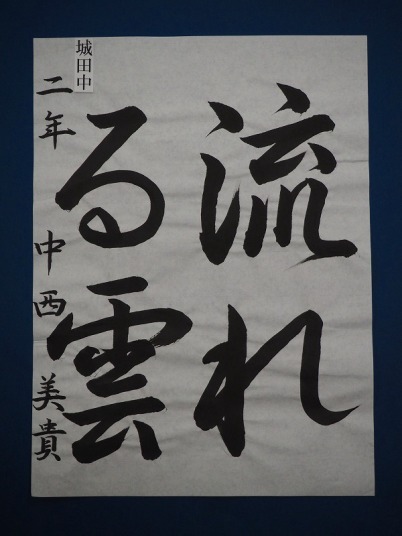 流れ
る雲
城田中
二年 中西美貴